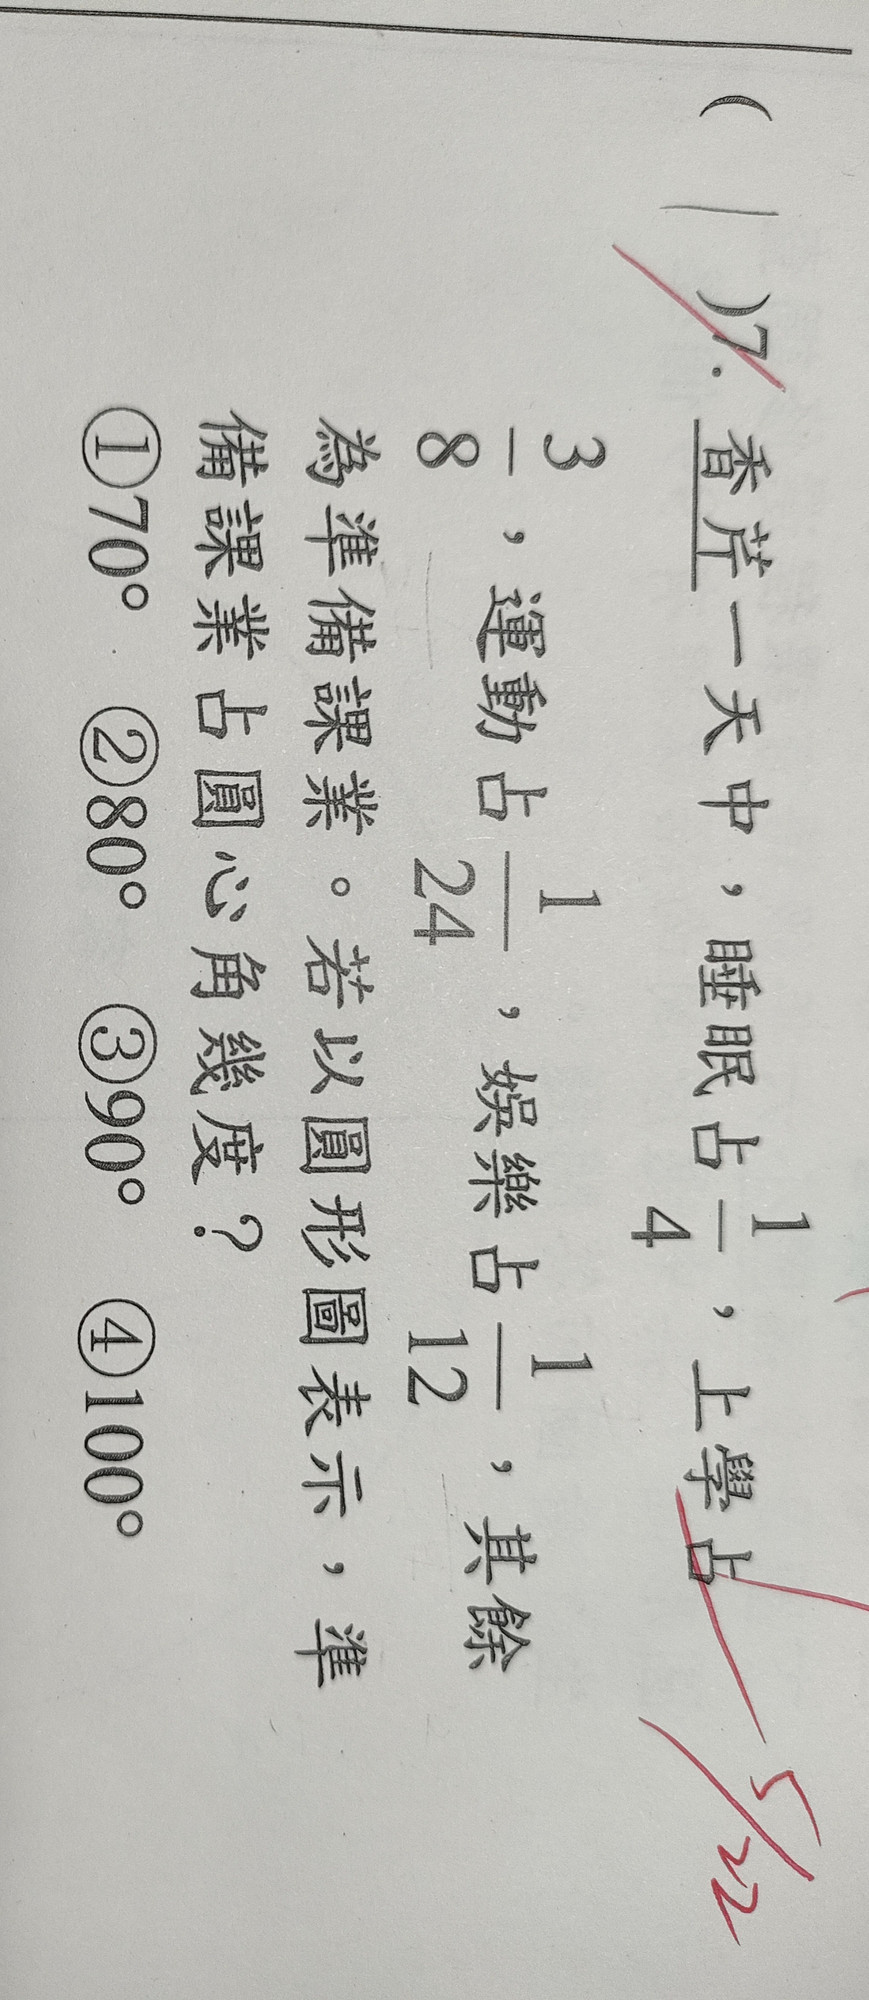 ( 1 )7. 香芹一天中，睡眠占1/4，上學占
3/8，運動占1/24，娛樂占1/12，其餘
為準備課業。若以圓形圖表示，準
備課業占圓心角幾度？
①70° ②80° ③90° ④100°
5/22